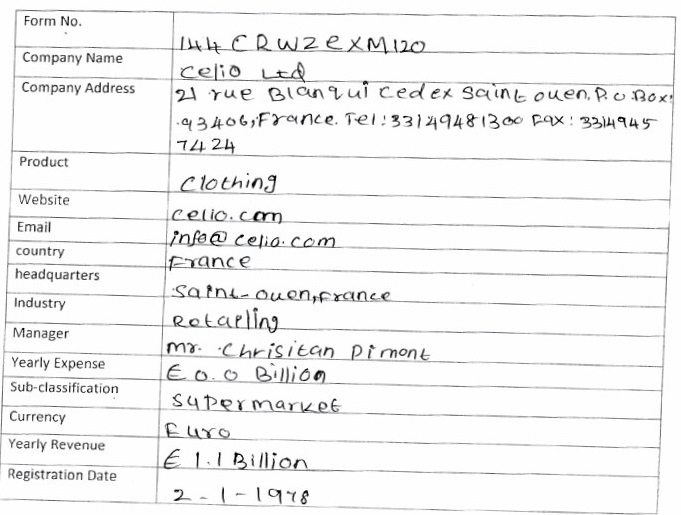 Form No. 144CRWZeXM120
Company Name Celio Ltd
Company Address 21 rue Blanqui Cedex Saint ouen, P.O.Box:
93406, France. Tel: 33149481300 Fax: 3314945
7424
Product Clothing
Website celio.com
Email info@celio.com
country France
headquarters Saint-ouen, france
Industry Retapling
Manager mr. Chrisitan Pimont
Yearly Expense € 0.0 Billion
Sub-classification Supermarket
Currency Euro
Yearly Revenue € 1.1 Billion
Registration Date 2-1-1978